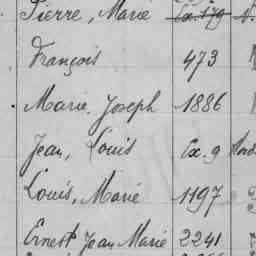 Pierre, Marie Ex. 179
François 473
Marie Joseph 1886
Jean, Louis Ex. 9
Louis, Marie 1197
Ernest Jean Marie 2241